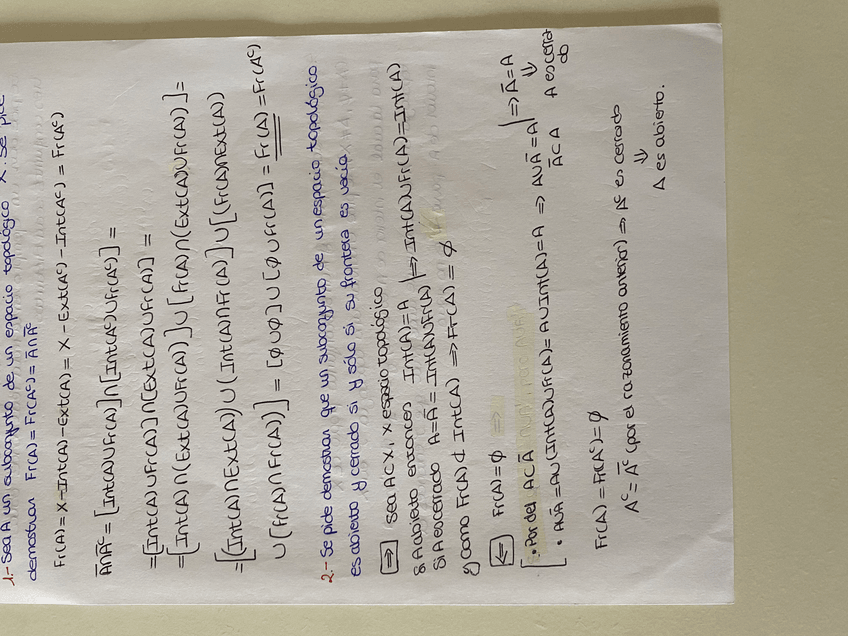 1.- Sea A un subconjunto de un espacio topológico X. Se pide
demostrar Fr(A) = Fr(Aᶜ) = A̅∩A̅ᶜ
Fr(A) = X - Int(A) - Ext(A) = X - Ext(Aᶜ) - Int(Aᶜ) = Fr(Aᶜ)
A̅∩A̅ᶜ = [Int(A)∪Fr(A)]∩[Int(Aᶜ)∪Fr(Aᶜ)] =
= [Int(A)∪Fr(A)]∩[Ext(A)∪Fr(A)] =
= [Int(A)∩(Ext(A)∪Fr(A))]∪[Fr(A)∩(Ext(A)∪Fr(A))] =
= [(Int(A)∩Ext(A))∪(Int(A)∩Fr(A))]∪[(Fr(A)∩Ext(A))
∪(Fr(A)∩Fr(A))] = [∅∪∅]∪[∅∪Fr(A)] = Fr(A) = Fr(Aᶜ)
2.- Se pide demostrar que un subconjunto de un espacio topológico
es abierto y cerrado si y sólo si su frontera es vacía.
⇒ Sea A⊂X, X espacio topológico
Si A abierto entonces Int(A) = A
Si A es cerrado A = A̅ = Int(A)∪Fr(A) ⇒ Int(A)∪Fr(A) = Int(A)
y como Fr(A) ⊄ Int(A) ⇒ Fr(A) = ∅
⇐ Fr(A) = ∅
• Por def A⊂A̅
• A∪A̅ = A∪(Int(A)∪Fr(A)) = A∪Int(A) = A ⇒ A∪A̅ = A ⇒ A̅ = A
A̅⊂A ⇓
A es cerrado
Fr(A) = Fr(Aᶜ) = ∅
Aᶜ = A̅ᶜ (por el razonamiento anterior) ⇒ Aᶜ es cerrado
⇓
A es abierto.